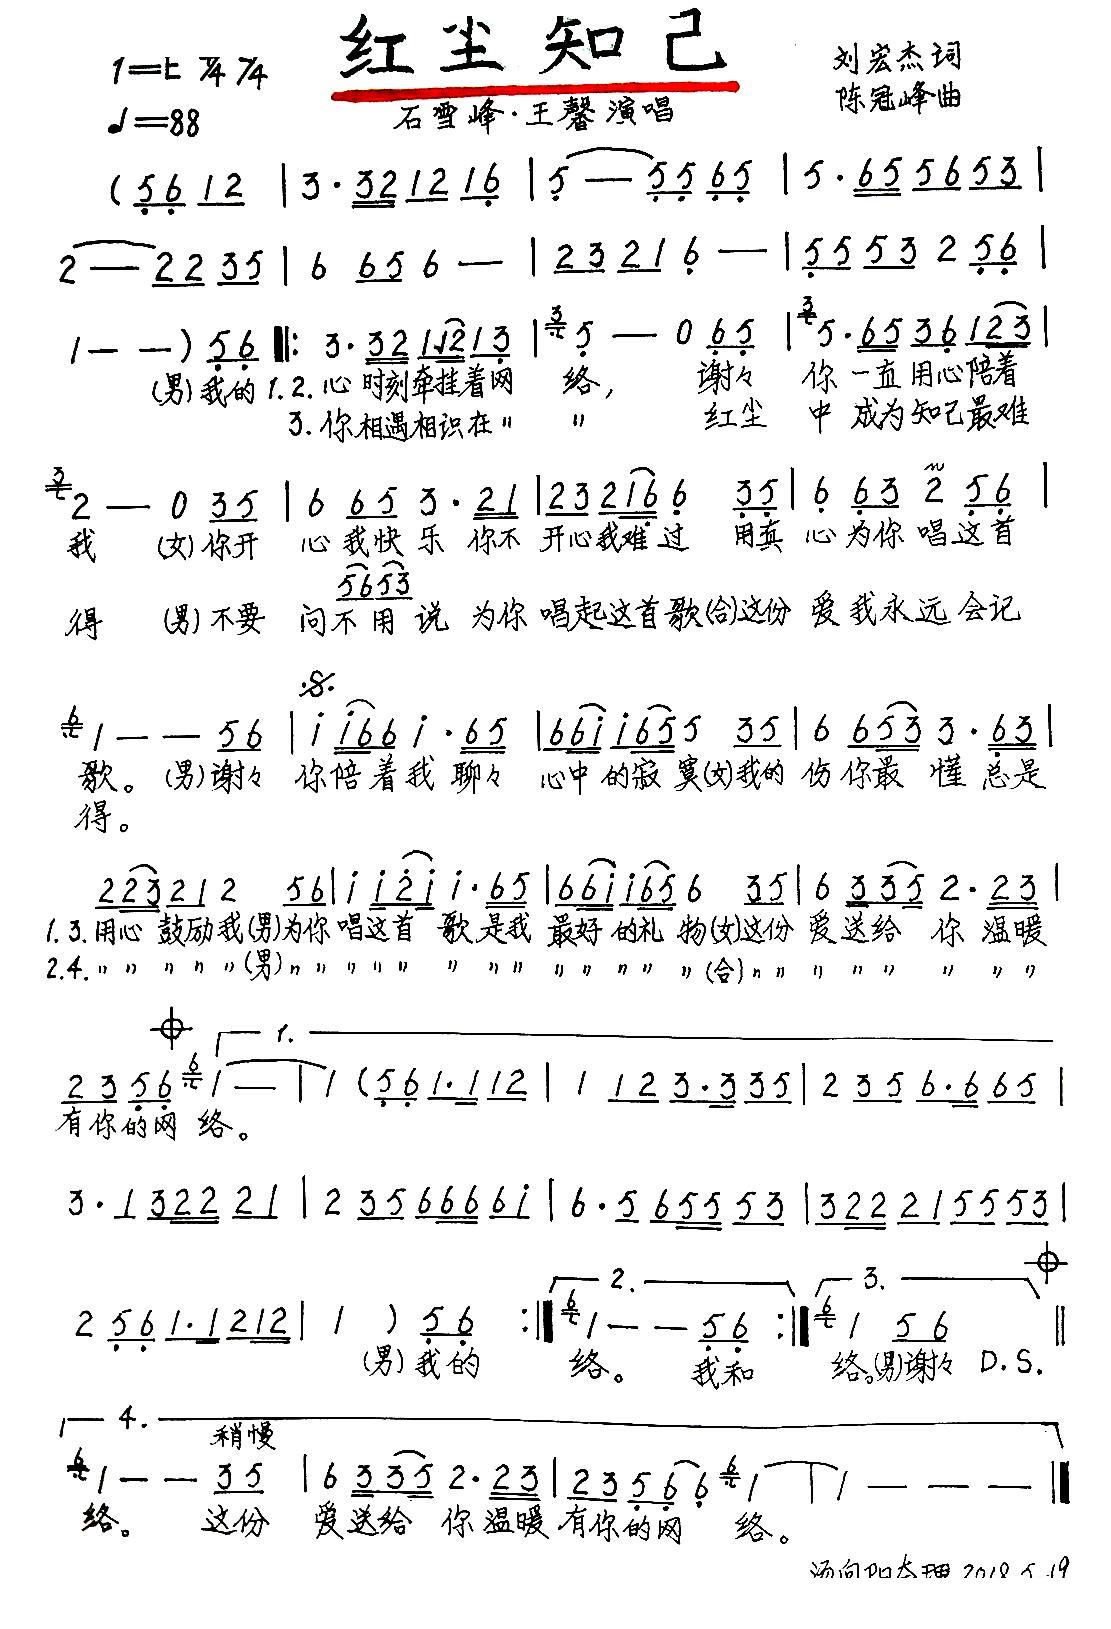 红尘知己
刘宏杰词
陈冠峰曲
♩=88
石雪峰·王馨演唱
(56 12 | 3·32 12 16 | 5 — 55 65 | 5·65 56 53 |
2 — 22 35 | 6 65 6 — | 23 21 6 — | 55 53 2 56 |
1 — — ) 56 ‖: 3·32 1 2 13 | 5 — 0 65 | 5·65 36 123 |
(男)我的 1.2.心时刻牵挂着网 络, 谢々 你一直用心陪着
3.你相遇相识在〃 〃 红尘 中成为知己最难
2 — 0 35 | 6 65 3·21 | 23 216 6 35 | 6 63 2 56 |
我 (女)你开 心我快乐你不 开心我难过 用真 心为你唱这首
5653
得 (男)不要 问不用说 为你 唱起这首歌(合)这份 爱我永远会记
1 — — 56 | i i66 i·65 | 66i i65 5 35 | 6 653 3·63 |
歌。(男)谢々 你陪着我聊々 心中的寂寞(女)我的 伤你最懂总是
得。
223 21 2 56 | i i2i i·65 | 66i i65 6 35 | 6 335 2·23 |
1.3.用心鼓励我(男)为你 唱这首歌是我 最好的礼物(女)这份 爱送给你温暖
2.4.〃〃〃〃〃(男)〃〃〃〃〃〃〃〃〃〃〃〃〃〃(合)〃〃〃〃〃〃〃〃
1.
23 56 1 — | 1 (56 1·1 12 | 1 12 3·3 35 | 2 35 6·6 65 |
有你的网 络。
3·1 322 21 | 2 35 666 6i | 6·5 655 53 | 322 21 55 53 |
2. 3.
2 56 1·1 212 | 1 ) 56 :‖ 1 — — 56 :‖ 1 56 ‖
(男)我的 络。 我和 络。(男)谢々 D.S.
4.
稍慢
1 — — 35 | 6 335 2·23 | 23 566 1 | 1 — — — ‖
络。 这份 爱送给你温暖 有你的网 络。